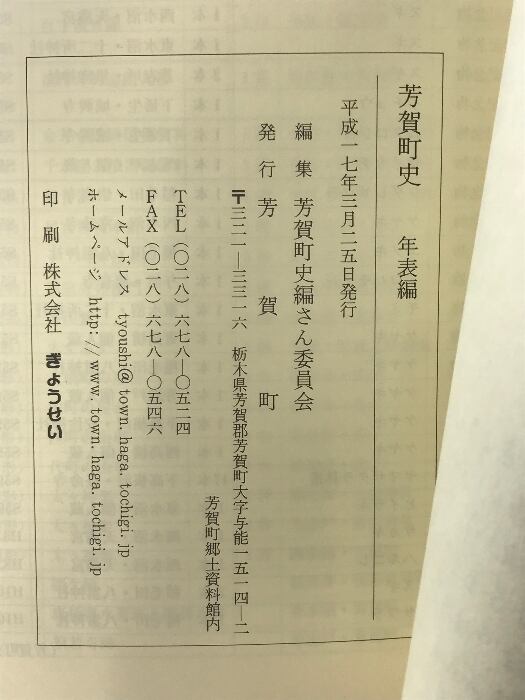 芳賀町史　年表編
平成一七年三月二五日発行
編集　芳賀町史編さん委員会
発行　芳賀町
〒三二一―三三二六　栃木県芳賀郡芳賀町大字与能一五一四―二
芳賀町郷土資料館内
TEL（〇二八）六七八―〇五二四
FAX（〇二八）六七八―〇五四六
メールアドレス　tyoushi@town.haga.tochigi.jp
ホームページ　http://www.town.haga.tochigi.jp
印刷　株式会社　ぎょうせい